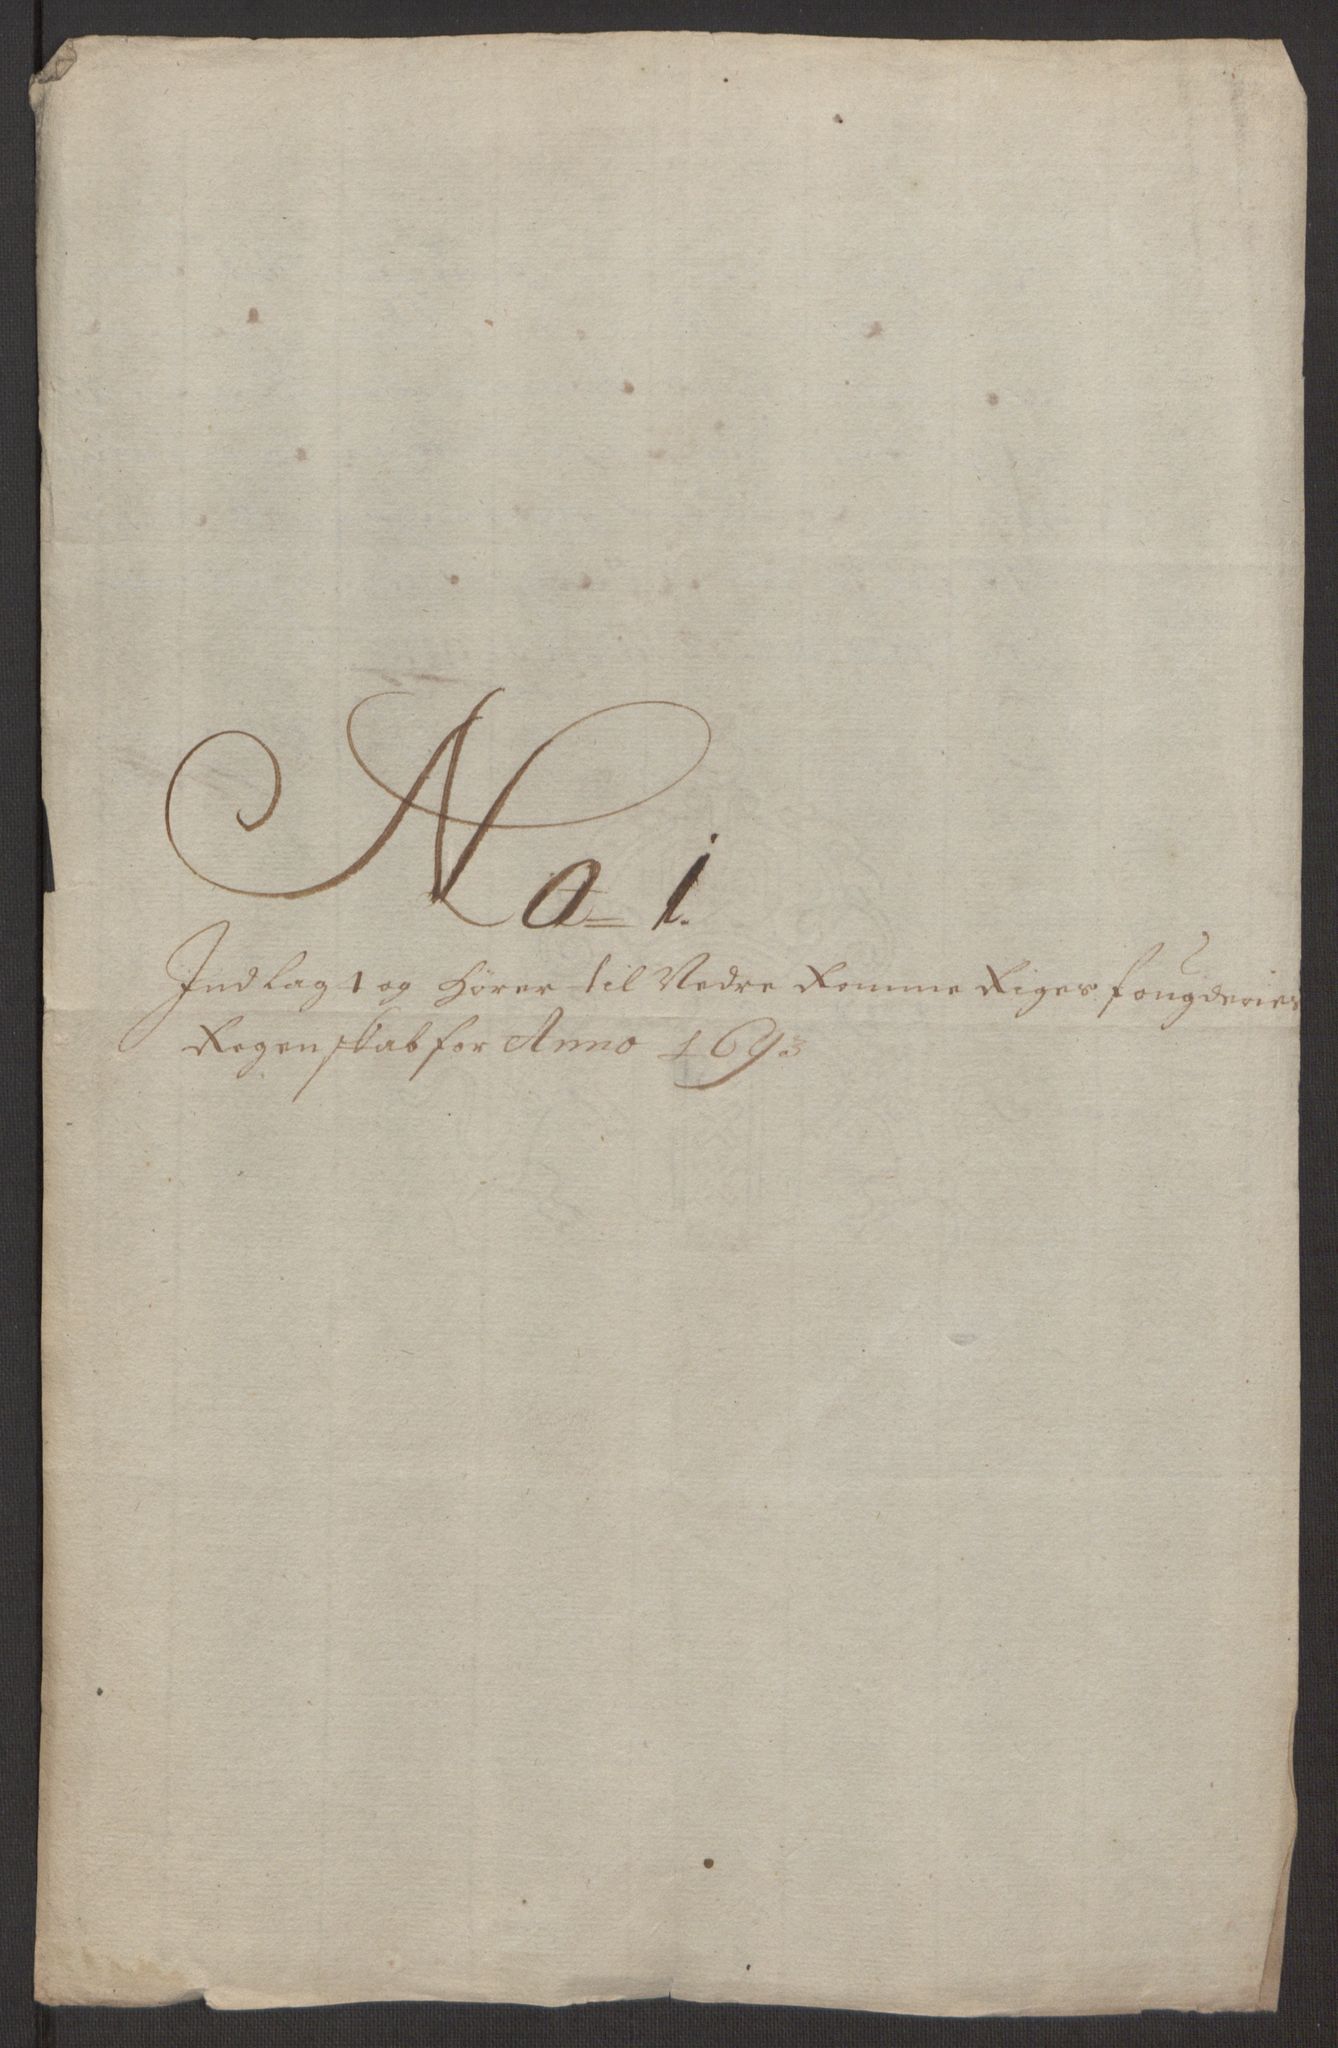 No 1.
Indlagt og hører til Nedre Romme Riges fougderies
Regenskab for Anno 1693